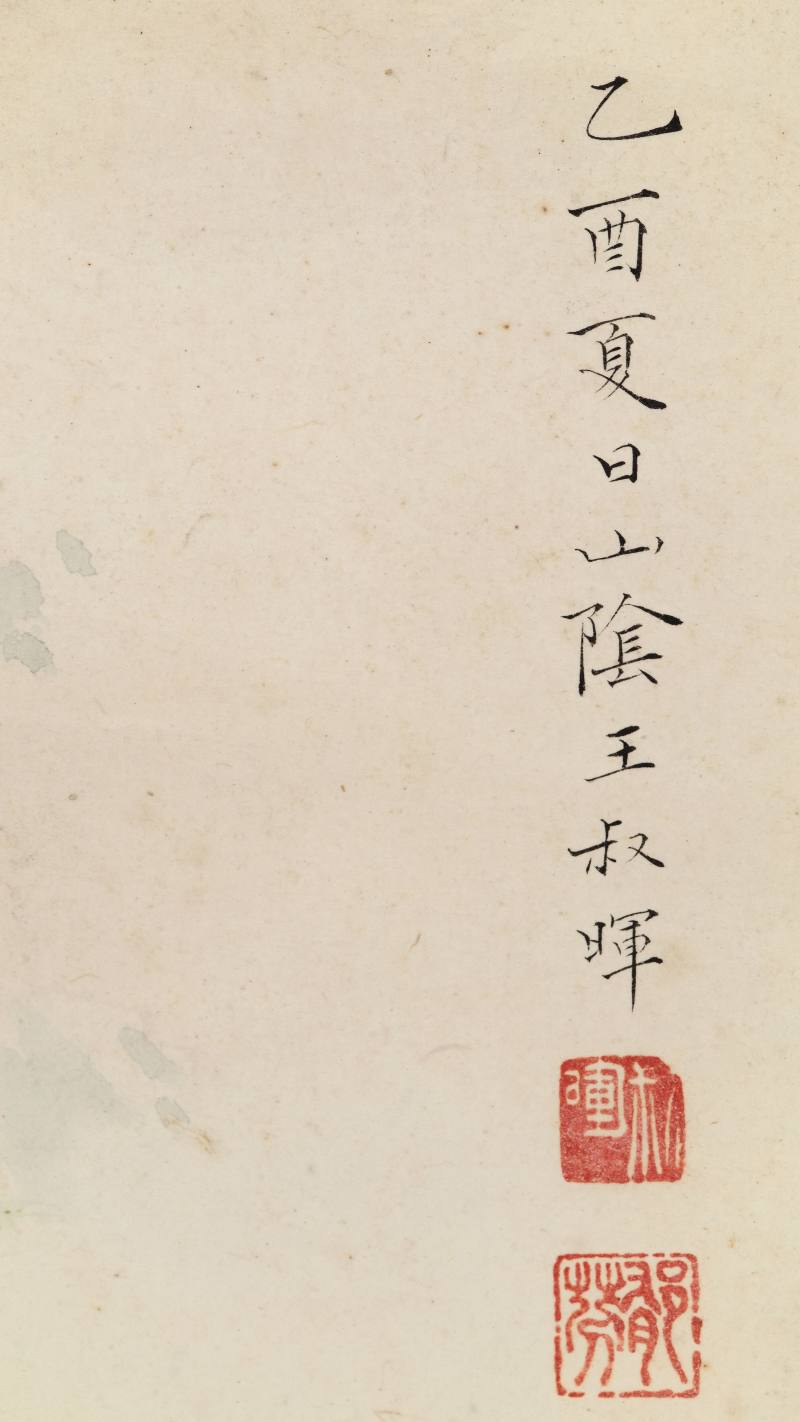 乙酉夏日山陰王叔暉
叔暉